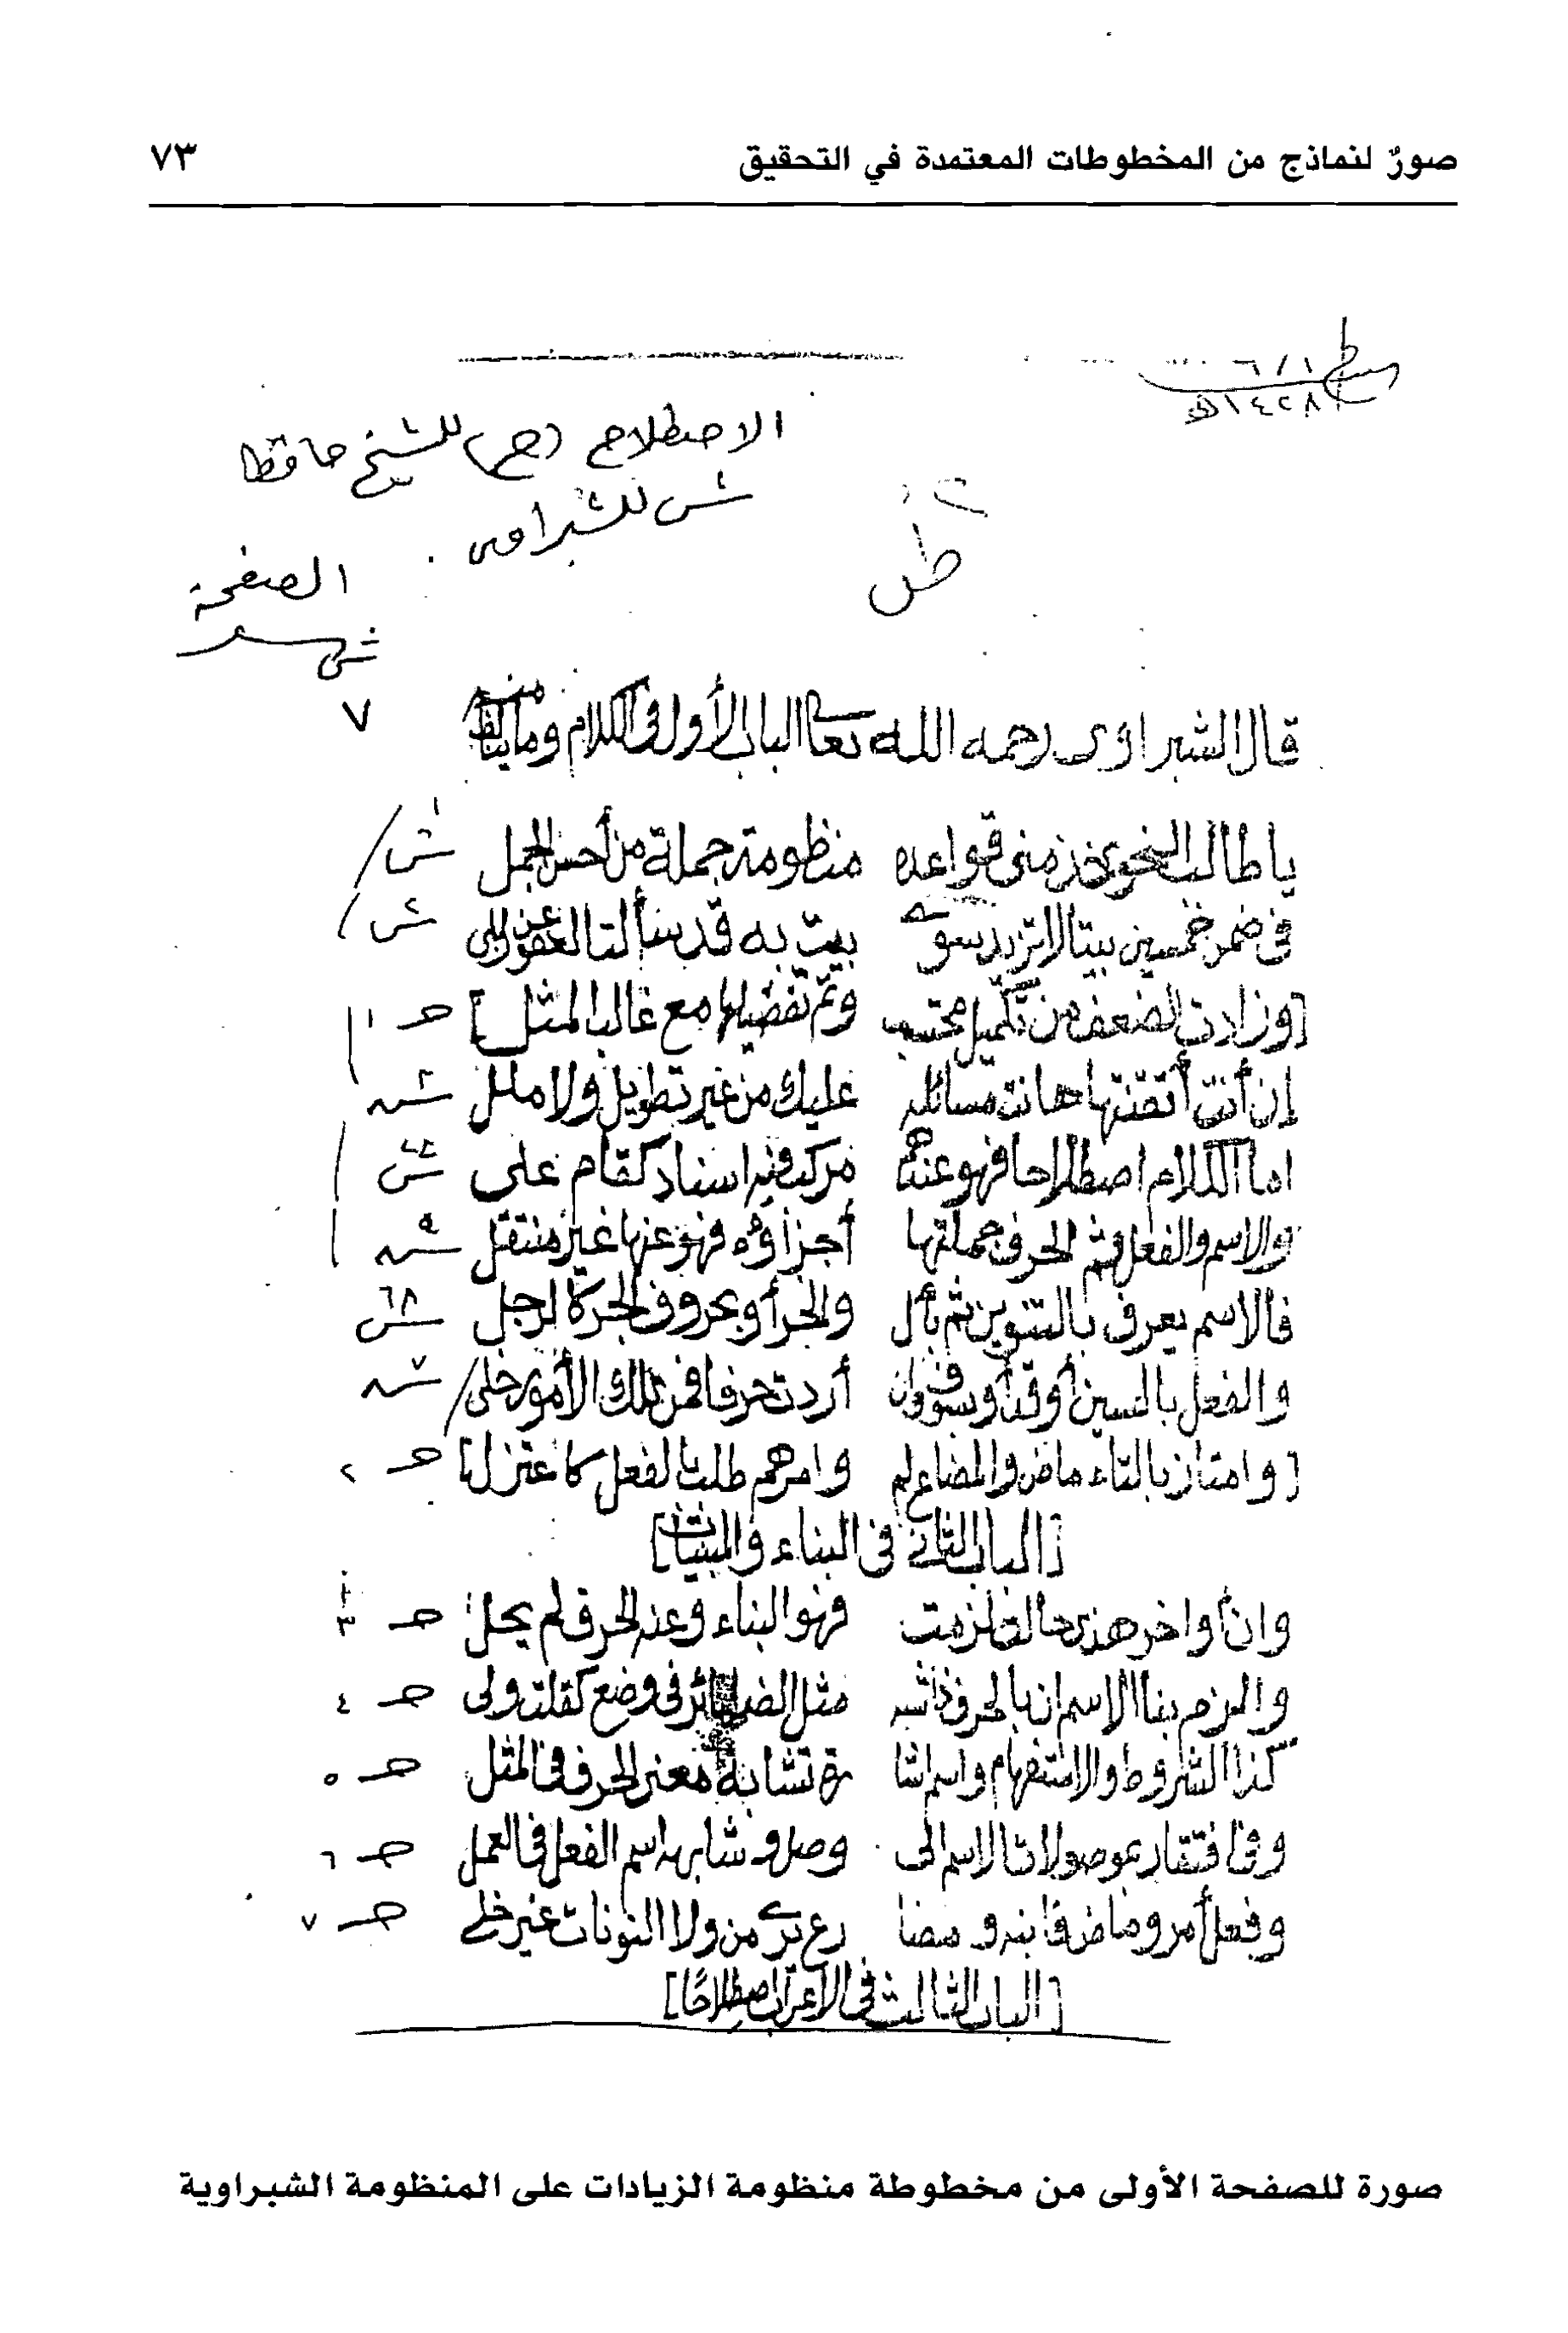 صورٌ لنماذج من المخطوطات المعتمدة في التحقيق ٧٣
٦/١
١٤٢٨هـ
الاصطلاح (حـ) للشيخ حافظ
ش للشبراوى
الصفحة
٧
قال الشبراوى رحمه الله تعالى الباب الأول فى الكلام وما يتألف منه
يا طالب النحو خذ منى قواعده منظومة جملة من أحسن الجمل ش ١
فى ضمن خمسين بيتا لا تزيد سوى بيت به قد سألت العفو عن زللى ش ٢
[وزاد ذى الضعف من تكميل محتسب وتم تفضيلها مع غالب المثل] حـ ١
إن أنت أتقنتها هانت مسائله عليك من غير تطويل ولا ملل ش ٣
اما الكلام اصطلاحا فهو عندهم مركب فيه اسناد كقام على ش ٤
والاسم والفعل ثم الحرف جملتها أجزاؤه فهو عنها غير منتقل ش ٥
فالاسم يعرف بالتنوين ثم بأل والجر أو بحروف الجر كالرجل ش ٦
والفعل بالسين أو قد أو بسوف وان أردت حرفا فمن تلك الأمور خلى ش ٧
[وامتاز بالتاء ماض والمضارع لم وامرهم طلب الفعل كاعتزل] حـ ٢
[الباب الثانى فى البناء والمبنيات]
وان أواخر هذى حالة لزمت فهو البناء وعنه الحرف لم يحل حـ ٣
والزم بنا الاسم ان بالحرف ذا شبه مثل الضمائر فى وضع كقلت ولى حـ ٤
كذا الشروط والاستفهام واسم اشا رة تشابه معنى الحرف فى المثل حـ ٥
وفى افتقار بموصولات الاسم الى وصل وشابهه اسم الفعل فى العمل حـ ٦
وفعل أمر وماض فابنه ومضا رع ترى من ولا النونات غير خلى حـ ٧
[الباب الثالث فى الاعراب اصطلاحًا]
صورة للصفحة الأولى من مخطوطة منظومة الزيادات على المنظومة الشبراوية